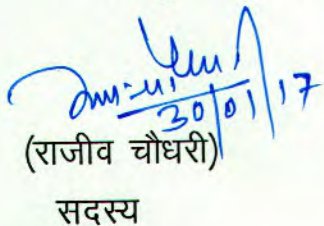 30/01/17
(राजीव चौधरी)
सदस्य